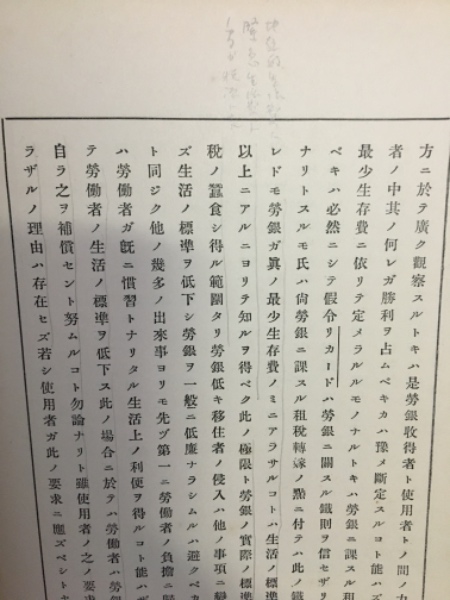 方ニ於テ廣ク觀察スルトキハ是勞銀收得者ト使用者トノ間ノ
者ノ中其ノ何レガ勝利ヲ占ムベキカハ豫メ斷定スルコト能ハズ
最少生存費ニ依リテ定メラルルモノナルトキハ勞銀ニ課スル租
ベキハ必然ニシテ假令リカードハ勞銀ニ關スル鐵則ヲ信セザリ
ナリトスルモ氏ハ尙勞銀ニ課スル租稅轉嫁ノ點ニ付テハ此ノ鐵
レドモ勞銀ガ眞ノ最少生存費ノミニアラサルコトハ生活ノ標
以上ニアルニヨリテ知ルヲ得ベク此ノ極限ト勞銀ノ實際ノ標
稅ノ蠶食シ得ル範圍タリ勞銀低キ移住者ノ侵入ハ他ノ事項ニ
ズ生活ノ標準ヲ低下シ勞銀ヲ一般ニ低廉ナラシムルハ避クベカ
ト同ジク他ノ幾多ノ出來事ヨリモ先ヅ第一ニ勞働者ノ負擔ニ
ハ勞働者ガ旣ニ慣習トナリタル生活上ノ利便ヲ得ルコト能ハ
テ勞働者ノ生活ノ標準ヲ低下ス此ノ場合ニ於テハ勞働者ハ勞
自ラ之ヲ補償セント努ムルコト勿論ナリト雖使用者ノ之ノ要
ラザルノ理由ハ存在セズ若シ使用者ガ此ノ要求ニ應ズベシトキ